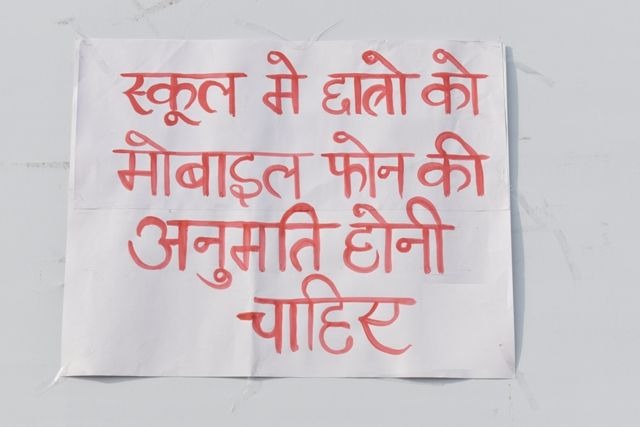 स्कूल मे छात्रो को
मोबाइल फोन की
अनुमति होनी
चाहिए